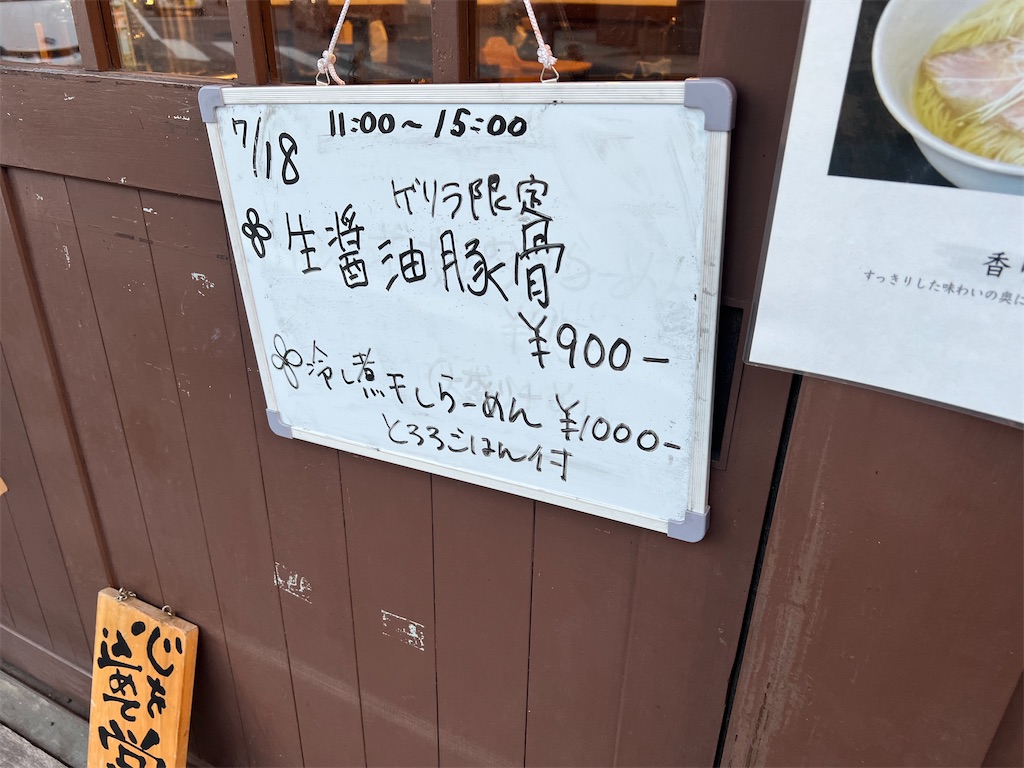 7/18
11:00～15:00
ゲリラ限定
生醤油豚骨
¥900-
冷し煮干しらーめん ¥1000-
とろろごはん付
香
すっきりした味わいの奥に